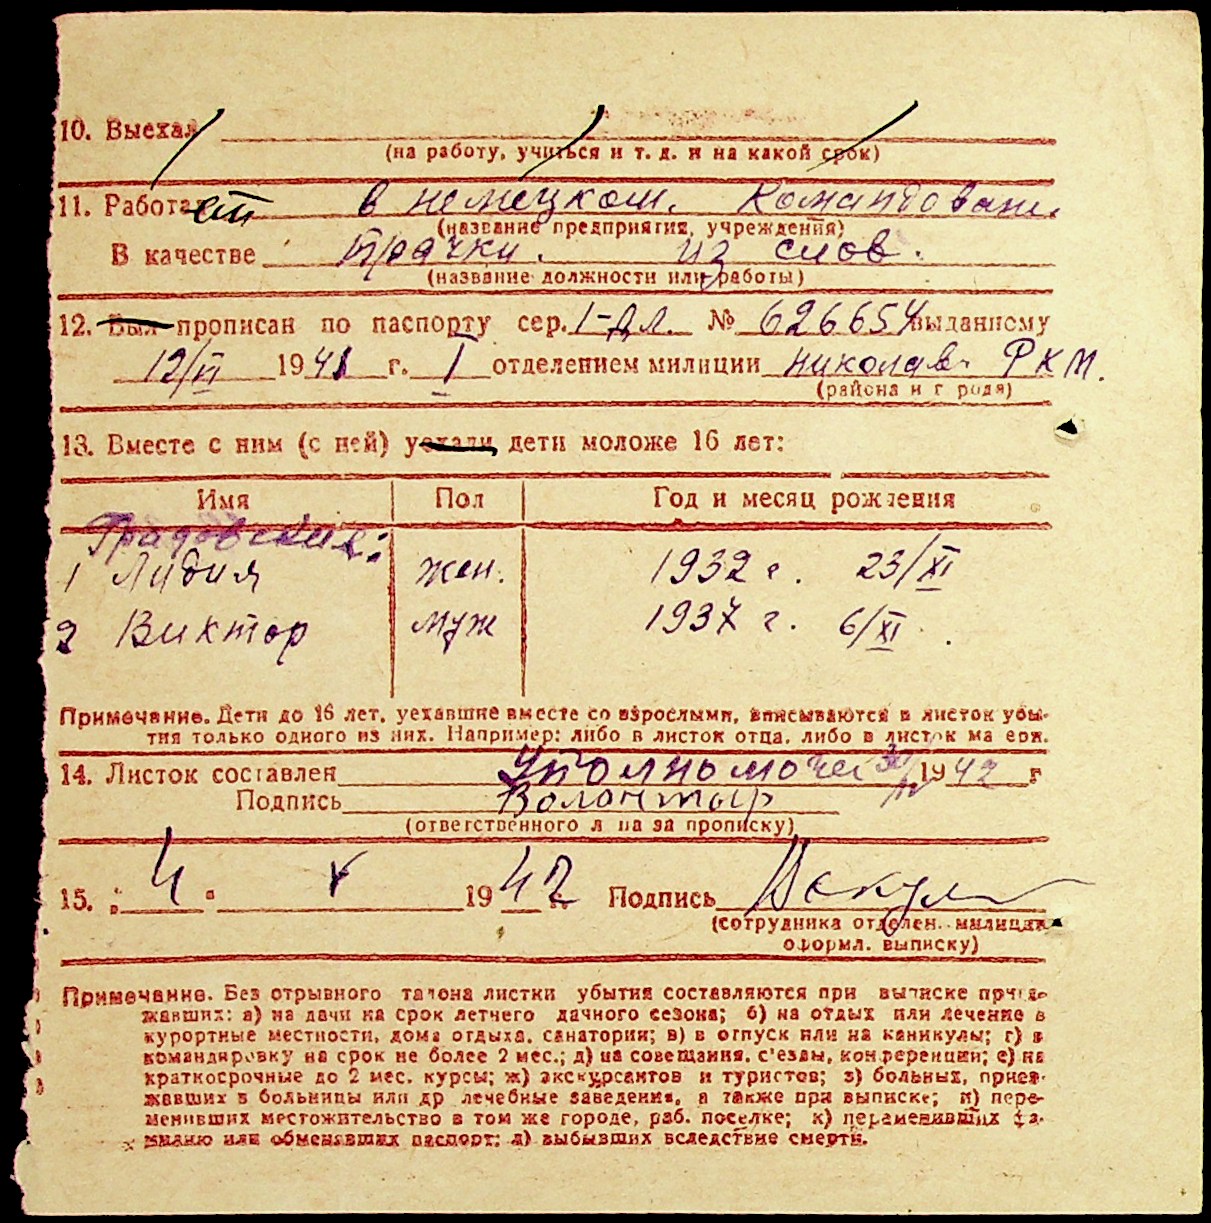 10. Выехал
(на работу, учиться и т. д. и на какой срок)
11. Работает в немецком. Командован.
(название предприятия, учреждения)
В качестве прачки. из слов.
(название должности или работы)
12. Был прописан по паспорту сер. I-ДЛ. № 626654 выданному
12/VI 1941 г. I отделением милиции Николаев. РКМ.
(района и г рода)
13. Вместе с ним (с ней) уехали дети моложе 16 лет:
Имя Пол Год и месяц рождения
Градовские:
1 Лидия жен. 1932 г. 23/XI
2 Виктор муж 1937 г. 6/XI.
Примечание. Дети до 16 лет, уехавшие вместе со взрослыми, вписываются в листок убы-
тия только одного из них. Например: либо в листок отца, либо в листок ма ери.
14. Листок составлен Уполномочен 30/IV 1942 г
Подпись Волонтыр
(ответственного л ца за прописку)
15. „ 4 “ V 1942 г. Подпись
(сотрудника отделен. милиции
оформл. выписку)
Примечание. Без отрывного талона листки убытия составляются при выписке приез-
жавших: а) на дачи на срок летнего дачного сезона; б) на отдых или лечение в
курортные местности, дома отдыха, санатории; в) в отпуск или на каникулы; г) в
командировку на срок не более 2 мес.; д) на совещания, с'езды, конференции; е) на
краткосрочные до 2 мес. курсы; ж) экскурсантов и туристов; з) больных, приез-
жавших в больницы или др лечебные заведения, а также при выписке; и) пере-
менивших местожительство в том же городе, раб. поселке; к) переменивших фа-
милию или обменявших паспорт; л) выбывших вследствие смерти.